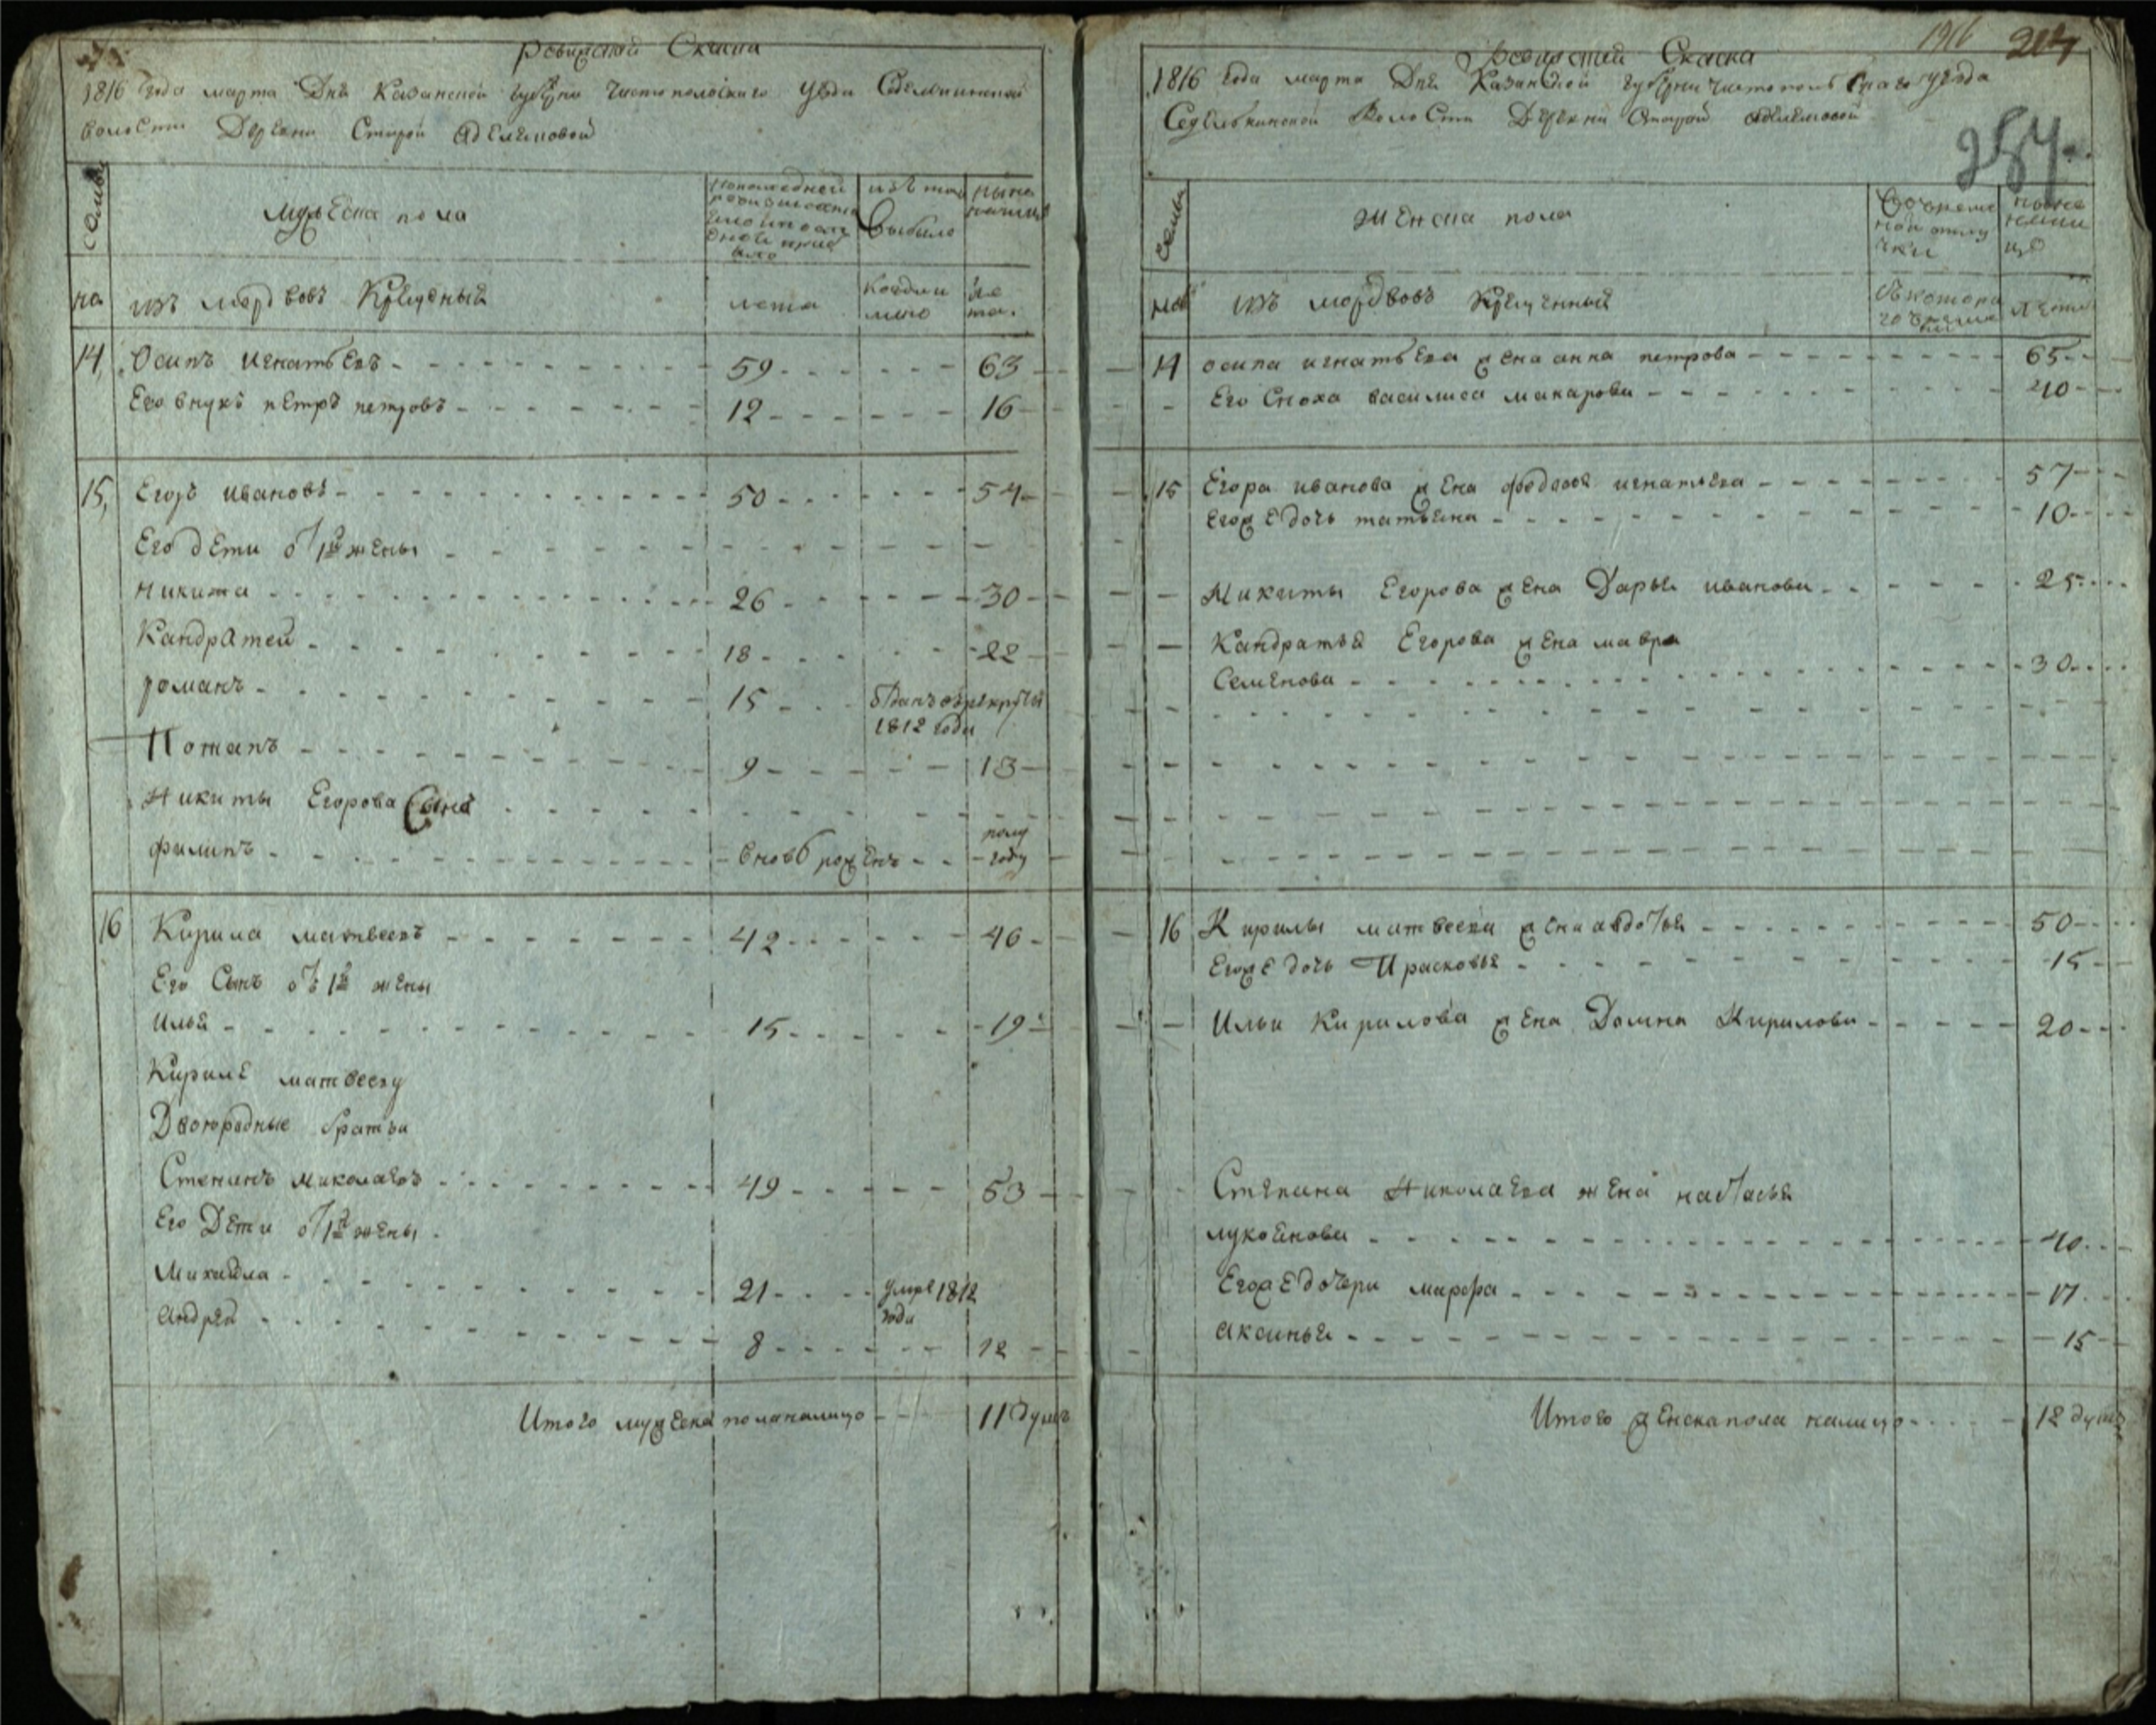 Ревизская Сказка
1816 года марта Дня Казанской губерни Чистопольскаго уезда
волости Деревни Старой Аделяковой
семьи
мужеска пола
по последней
из того
выбыло
ныне
налицо
на
изъ мордвовъ Крещеный
лета
когда и
ле
та.
14, Осипъ игнатьевъ 59 63
Его внукъ петръ петровъ 12 16
15, Егоръ ивановъ 50 54
Его дети от 1й жены
Никита 26 30
Кандратей 18 22
романъ 15 отданъ в рекруты
1812 года
Потапъ 9 13
Никиты Егорова Сынъ
филипъ вновь рожденъ полу
году
16 Кирила матвеевъ 42 46
Его Сынъ от 1й жены
Илья 15 19
Кириле матвееву
Двоюродные братья
Степанъ николаевъ 49 53
Его Дети от 1й жены
Михайла 21 умре 1812
года
андрей 8 12
Итого мужеска пола налицо 11 душъ
1916 217
Ревизская Сказка
1816 года марта Дня Казанской губерни чистопольскаго уезда
Седелькинской Волости Деревни Старой Аделяковой
257.
семьи
женска пола
во време
нной отлу
чки
ныне
нали
цо
изъ мордвовъ Крещенный
съ котора
го времени
лета
14 осипа игнатьева жена анна петрова 65
Его Сноха василиса макарова 40
15 Егора иванова жена федосья игнатьева 57
Его же дочь татьяна 10
Никиты Егорова жена Дарья иванова 25
Кандратья Егорова жена мавра
Семенова 30
16 Кирилы матвеева жена авдотья 50
Его же дочь Прасковья 15
Ильи Кирилова жена Домна Кирилова 20
Степана Николаева жена настасья
лукоянова 40
Его же дочери марфа 17
аксинья 15
Итого женска пола налицо 12 душъ